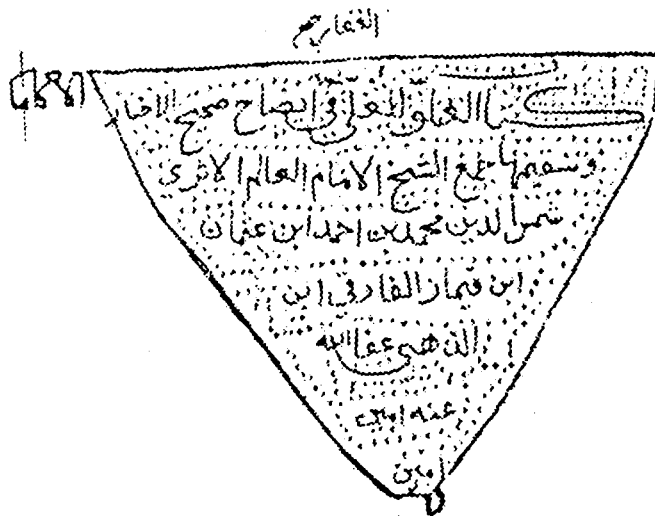 الغفار صح
كتاب العلو للعلي في ايضاح صحيح الاخبار
وسقيمها جمع الشيخ الامام العالم الاثري
شمس الدين محمد بن احمد ابن عثمان
ابن قيماز الفارقي ابن
الذهبي عفا الله
عنه امين
امين